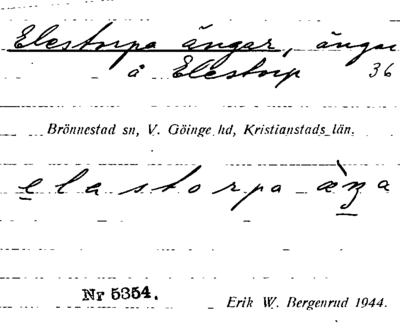 Elestorpa ängar, ängar
å Elestorp 36
Brönnestad sn, V. Göinge hd, Kristianstads län.
elastorpa
Nr 5354.
Erik W. Bergenrud 1944.